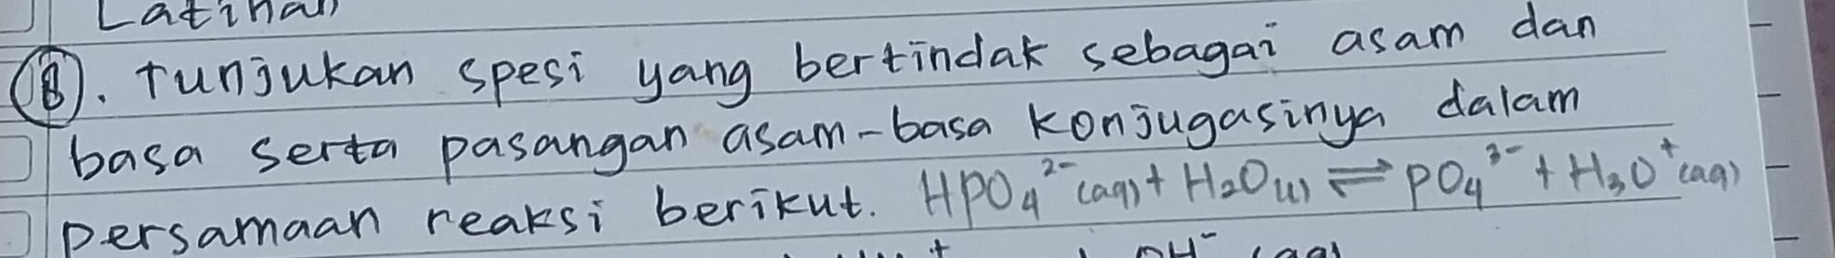 Latihan
(B). Tunjukan spesi yang bertindak sebagai asam dan
basa serta pasangan asam-basa konjugasinya dalam
persamaan reaksi berikut. HPO₄²⁻(aq) + H₂O(l) ⇌ PO₄³⁻ + H₃O⁺(aq)
OH⁻ (aq)